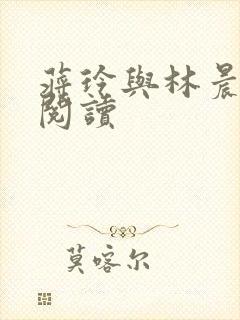 蔣玲與林晨
閱讀
莫喀尔